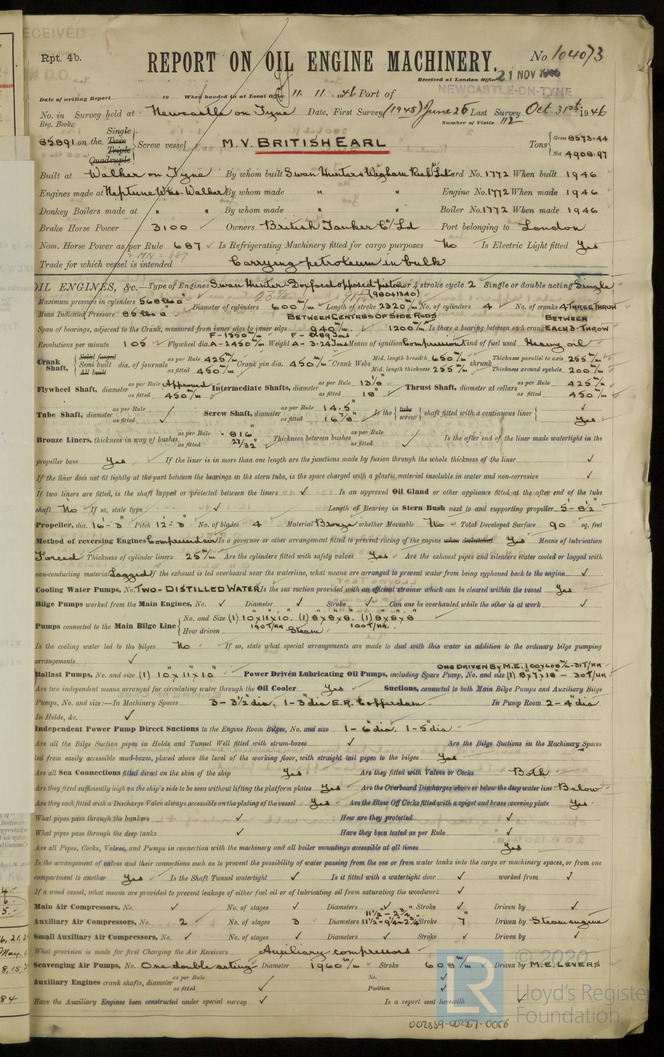 RECEIVED
D.O.
Rpt. 4b.
REPORT ON OIL ENGINE MACHINERY.
No 104073
Received at London Office 21 NOV 1946
NEWCASTLE-ON-TYNE
Date of writing Report 19 When handed in at Local Office 11. 11. 1946 Port of
No. in Reg. Book. Survey held at Newcastle on Tyne Date, First Survey (1945) June 26 Last Survey Oct. 31st 1946
Number of Visits 112
85891 on the Single Twin Triple Quadruple Screw vessel M.V. BRITISH EARL Tons Gross 8573.44 Net 4908.97
Built at Walker on Tyne By whom built Swan Hunter & Wigham Rich. Ld Yard No. 1772 When built 1946
Engines made at Neptune Wks. Walker By whom made " " Engine No. 1772 When made 1946
Donkey Boilers made at " " By whom made " " Boiler No. 1772 When made 1946
Brake Horse Power 3100 Owners British Tanker Co Ld Port belonging to London
Nom. Horse Power as per Rule 687 Is Refrigerating Machinery fitted for cargo purposes No Is Electric Light fitted Yes
Trade for which vessel is intended Carrying petroleum in bulk
OIL ENGINES, &c. Type of Engines Swan Hunter Doxford opposed piston 2 or 4 stroke cycle 2 Single or double acting Single
Maximum pressure in cylinders 568 lbs Diameter of cylinders 600 m/m Length of stroke 2320 m/m No. of cylinders 4 No. of cranks 4 THREE THROW
(980+1340)
Mean Indicated Pressure 86 lbs BETWEEN CENTRES OF SIDE RODS
Span of bearings, adjacent to the Crank, measured from inner edge to inner edge 940 m/m 1200 m/m Is there a bearing between each crank BETWEEN EACH 3-THROW
Revolutions per minute 105 Flywheel dia. A-2450 m/m Weight A-3.24 Tons Means of ignition Compression Kind of fuel used Heavy oil
Crank Shaft, Solid forged Semi built All built dia. of journals as per Rule 425 m/m as fitted 450 m/m Crank pin dia. 450 m/m Crank Webs Mid. length breadth 650 m/m Mid. length thickness 255 m/m shrunk Thickness parallel to axis 255 m/m Thickness around eyehole 200 m/m
Flywheel Shaft, diameter as per Rule Approved as fitted 450 m/m Intermediate Shafts, diameter as per Rule 13⅛" as fitted 18" Thrust Shaft, diameter at collars as per Rule 425 m/m as fitted 450 m/m
Tube Shaft, diameter as per Rule as fitted Screw Shaft, diameter as per Rule 14.5" as fitted 16⅞" Is the tube screw shaft fitted with a continuous liner Yes
Bronze Liners, thickness in way of bushes as per Rule .816 as fitted 27/32" Thickness between bushes as per Rule as fitted Is the after end of the liner made watertight in the
propeller boss Yes If the liner is in more than one length are the junctions made by fusion through the whole thickness of the liner
If the liner does not fit tightly at the part between the bearings in the stern tube, is the space charged with a plastic material insoluble in water and non-corrosive
If two liners are fitted, is the shaft lapped or protected between the liners Is an approved Oil Gland or other appliance fitted at the after end of the tube
shaft No If so, state type Length of Bearing in Stern Bush next to and supporting propeller 5'-8½"
Propeller, dia. 16'-3" Pitch 12'-3" No. of blades 4 Material Bronze whether Moveable No Total Developed Surface 90 sq. feet
Method of reversing Engines Compressed air Is a governor or other arrangement fitted to prevent racing of the engine when declutched Yes Means of lubrication
Forced Thickness of cylinder liners 25 m/m Are the cylinders fitted with safety valves Yes Are the exhaust pipes and silencers water cooled or lagged with
non-conducting material Lagged If the exhaust is led overboard near the waterline, what means are arranged to prevent water from being syphoned back to the engine
Cooling Water Pumps, No. TWO-DISTILLED WATER Is the sea suction provided with an efficient strainer which can be cleared within the vessel Yes
Bilge Pumps worked from the Main Engines, No. Diameter Stroke Can one be overhauled while the other is at work
Pumps connected to the Main Bilge Line No. and Size (1) 10x11x10. (1) 8x8x8. (1) 8x8x8
How driven Steam
140 T/HR. 100 T/HR.
Is the cooling water led to the bilges No If so, state what special arrangements are made to deal with this water in addition to the ordinary bilge pumping
arrangements
ONE DRIVEN BY M.E. 100x600 m/m-31 T/HR
Ballast Pumps, No. and size (1) 10x11x10" Power Driven Lubricating Oil Pumps, including Spare Pump, No. and size (1) 8x7x18"-30 T/HR
Are two independent means arranged for circulating water through the Oil Cooler Yes Suctions, connected to both Main Bilge Pumps and Auxiliary Bilge
Pumps, No. and size:—In Machinery Spaces 3-3½" dia, 1-3" dia E.R. Cofferdam In Pump Room 2-4" dia
In Holds, &c.
Independent Power Pump Direct Suctions to the Engine Room Bilges, No. and size 1-6" dia. 1-5" dia.
Are all the Bilge Suction pipes in Holds and Tunnel Well fitted with strum-boxes Are the Bilge Suctions in the Machinery Spaces
led from easily accessible mud-boxes, placed above the level of the working floor, with straight tail pipes to the bilges Yes
Are all Sea Connections fitted direct on the skin of the ship Yes Are they fitted with Valves or Cocks Both
Are they fixed sufficiently high on the ship's side to be seen without lifting the platform plates Yes Are the Overboard Discharges above or below the deep water line Below
Are they each fitted with a Discharge Valve always accessible on the plating of the vessel Yes Are the Blow Off Cocks fitted with a spigot and brass covering plate Yes
What pipes pass through the bunkers How are they protected
What pipes pass through the deep tanks Have they been tested as per Rule
Are all Pipes, Cocks, Valves, and Pumps in connection with the machinery and all boiler mountings accessible at all times Yes
Is the arrangement of valves and their connections such as to prevent the possibility of water passing from the sea or from water tanks into the cargo or machinery spaces, or from one
compartment to another Yes Is the Shaft Tunnel watertight Is it fitted with a watertight door worked from
If a wood vessel, what means are provided to prevent leakage of either fuel oil or lubricating oil from saturating the woodwork
Main Air Compressors, No. No. of stages Diameters Stroke Driven by
Auxiliary Air Compressors, No. 2 No. of stages 3 Diameters Stroke 7" Driven by Steam engine
Small Auxiliary Air Compressors, No. No. of stages Diameters Stroke Driven by
What provision is made for first Charging the Air Receivers Auxiliary compressors
Scavenging Air Pumps, No. One double acting Diameter 1960 m/m Stroke 608 m/m Driven by M.E. LEVERS
Auxiliary Engines crank shafts, diameter as per Rule as fitted No. Position
Have the Auxiliary Engines been constructed under special survey Is a report sent herewith
© 2020
LR
Lloyd's Register
Foundation
002559-002567-0066